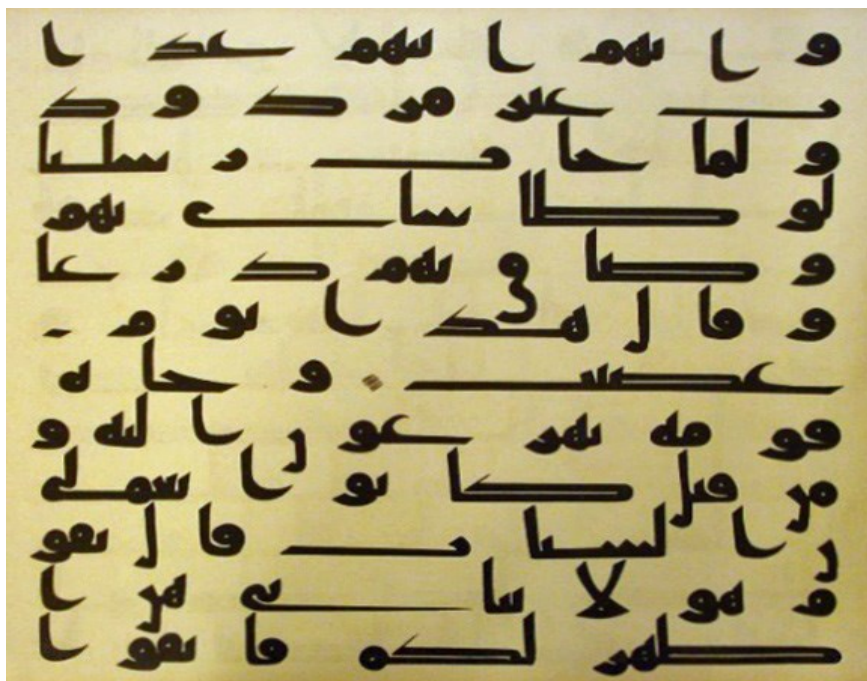 وانهم اتيهم عذا
ب غير مردود
ولما جات رسلنا
لوطا ساى بهم
وضاق بهم ذرعا
وقال هذا يوم
عصيب وجاه
قومه يهرعون اليه و
من قبل كانوا يعملو
ن السيات قال يقو
م هولا بناتى هن ا
طهر لكم فاتقوا ا